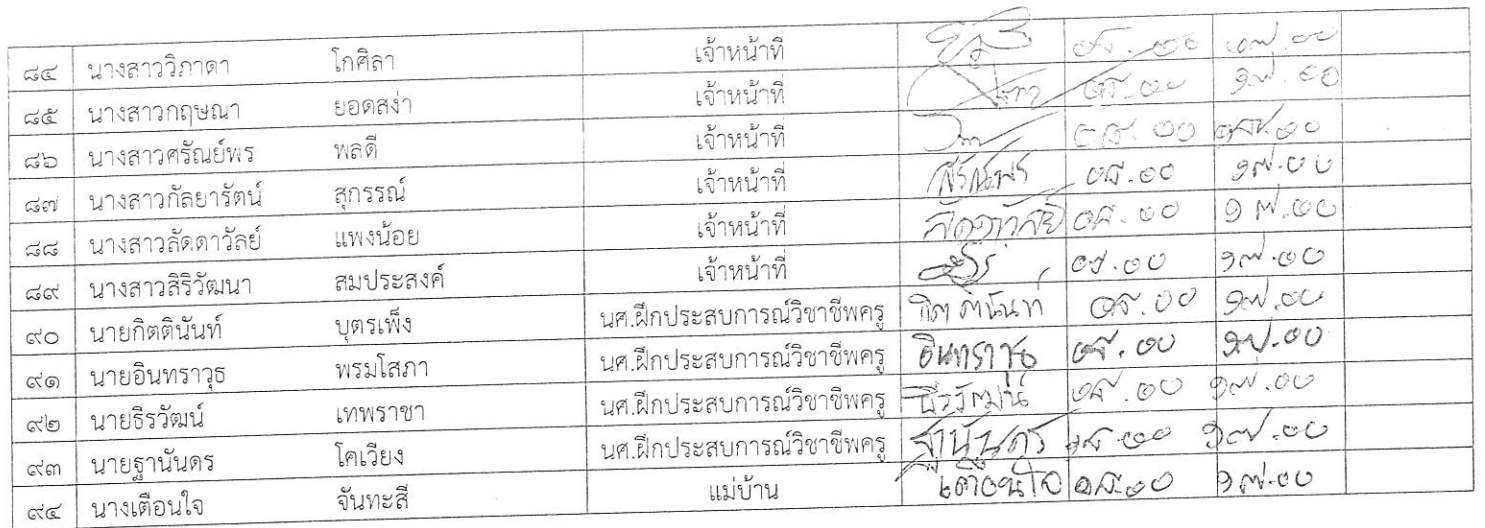 ๘๔ นางสาววิภาดา โกศิลา เจ้าหน้าที่
๘๕ นางสาวกฤษณา ยอดสง่า เจ้าหน้าที่
๘๖ นางสาวศรัณย์พร พลดี เจ้าหน้าที่
๘๗ นางสาวกัลยารัตน์ สุกรรณ์ เจ้าหน้าที่ ๐๘.๐๐ ๑๗.๐๐
๘๘ นางสาวลัดดาวัลย์ แพงน้อย เจ้าหน้าที่ ลัดดาวัลย์ ๐๘.๐๐ ๑๗.๐๐
๘๙ นางสาวสิริวัฒนา สมประสงค์ เจ้าหน้าที่ ๑๗.๐๐
๙๐ นายกิตตินันท์ บุตรเพ็ง นศ.ฝึกประสบการณ์วิชาชีพครู กิตตินันท์ ๐๘.๐๐ ๑๗.๐๐
๙๑ นายอินทราวุธ พรมโสภา นศ.ฝึกประสบการณ์วิชาชีพครู อินทราวุธ ๐๘.๐๐ ๑๗.๐๐
๙๒ นายธีรวัฒน์ เทพราชา นศ.ฝึกประสบการณ์วิชาชีพครู ธีรวัฒน์ ๐๘.๐๐ ๑๗.๐๐
๙๓ นายฐานันดร โคเวียง นศ.ฝึกประสบการณ์วิชาชีพครู ฐานันดร ๑๗.๐๐
๙๔ นางเตือนใจ จันทะสี แม่บ้าน เตือนใจ ๐๘.๐๐ ๑๗.๐๐